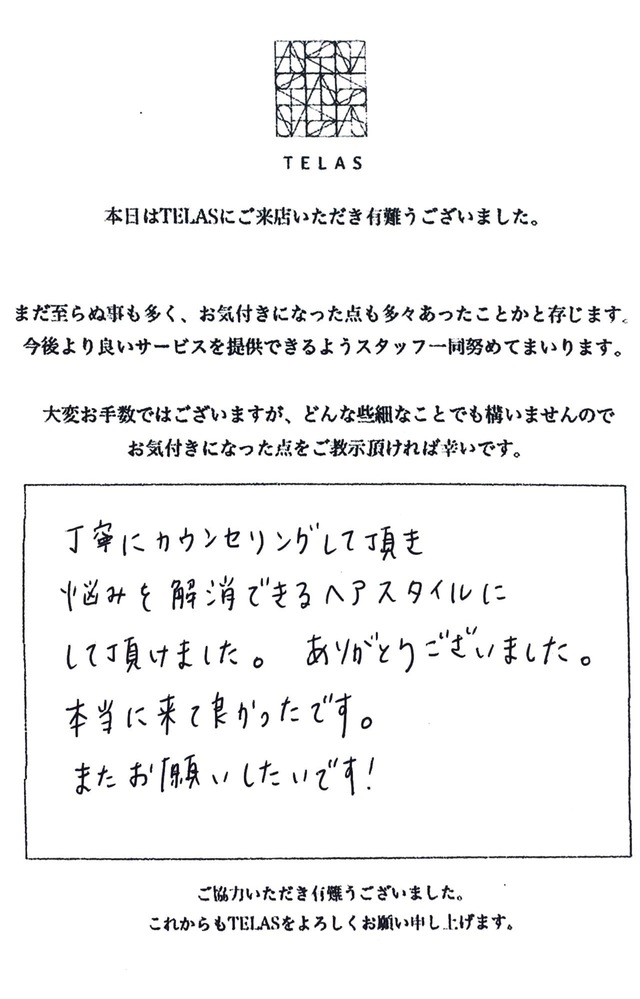 TELAS
本日はTELASにご来店いただき有難うございました。
まだ至らぬ事も多く、お気付きになった点も多々あったことかと存じます。
今後より良いサービスを提供できるようスタッフ一同努めてまいります。
大変お手数ではございますが、どんな些細なことでも構いませんので
お気付きになった点をご教示頂ければ幸いです。
丁寧にカウンセリングして頂き
悩みを解消できるヘアスタイルに
して頂けました。 ありがとうございました。
本当に来て良かったです。
またお願いしたいです!
ご協力いただき有難うございました。
これからもTELASをよろしくお願い申し上げます。